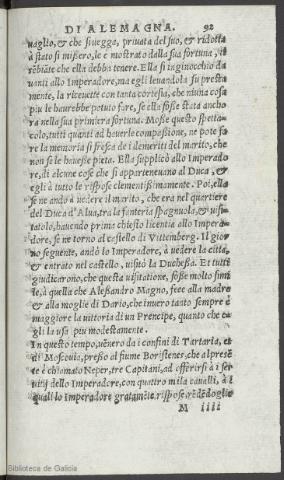 DI ALEMAGNA. 92
uaglio, & che si uegga, priuata del suo, & ridotta
à stato si misero, le è mostrato dalla sua fortuna, il
rebiate che ella debba tenere. Ella si inginocchiò da
uanti allo Imperadore, ma egli leuandola su presta
mente, la riceuette con tanta cortesia, che niuna cosa
piu le haurebbe potuto fare, se ella fosse stata anchο
ra nella sua primiera fortuna. Mosse questo spetta
colo, tutti quanti ad hauerle compassione, ne pote fa
re la memoria si fresca de i demeriti del marito, che
non se le hauesse pieta. Ella supplicò allo Imperado
re, di alcune cose che si apparteneuano al Duca, &
egli à tutto le rispose clementissimamente. Poi, ella
se ne andò à uedere il marito, che era nel quartiere
del Duca d'Alua, tra la fanteria spagnuola, & uisi
tatolo, hauendo prima chiesto licentia allo Impera
dore, se ne torno al castello di Vittemberg. Il gior
no seguente, andò lo Imperadore, à uedere la città,
& entrato nel castello, uisitò la Duchessa. Et tutti
giudicarono, che questa uisitatione, fosse molto simi
le, à quella che Alessandro Magno, fece alla madre
& alla moglie di Dario, che inuero tanto sempre è
maggiore la uittoria di un Prencipe, quanto che e
gli la usa piu modestamente.
In questo tempo, uẽnero da i confini di Tartaria, et
di Moscouia, presso al fiume Boristenes, che al presẽ
te è chiamato Neper, tre Capitani, ad offerirsi à i ser
uitij dello Imperadore, con quattro mila caualli, à i
quali lo Imperadore gratamẽte rispose, rẽdẽdoglie
M iiii
Biblioteca de Galicia